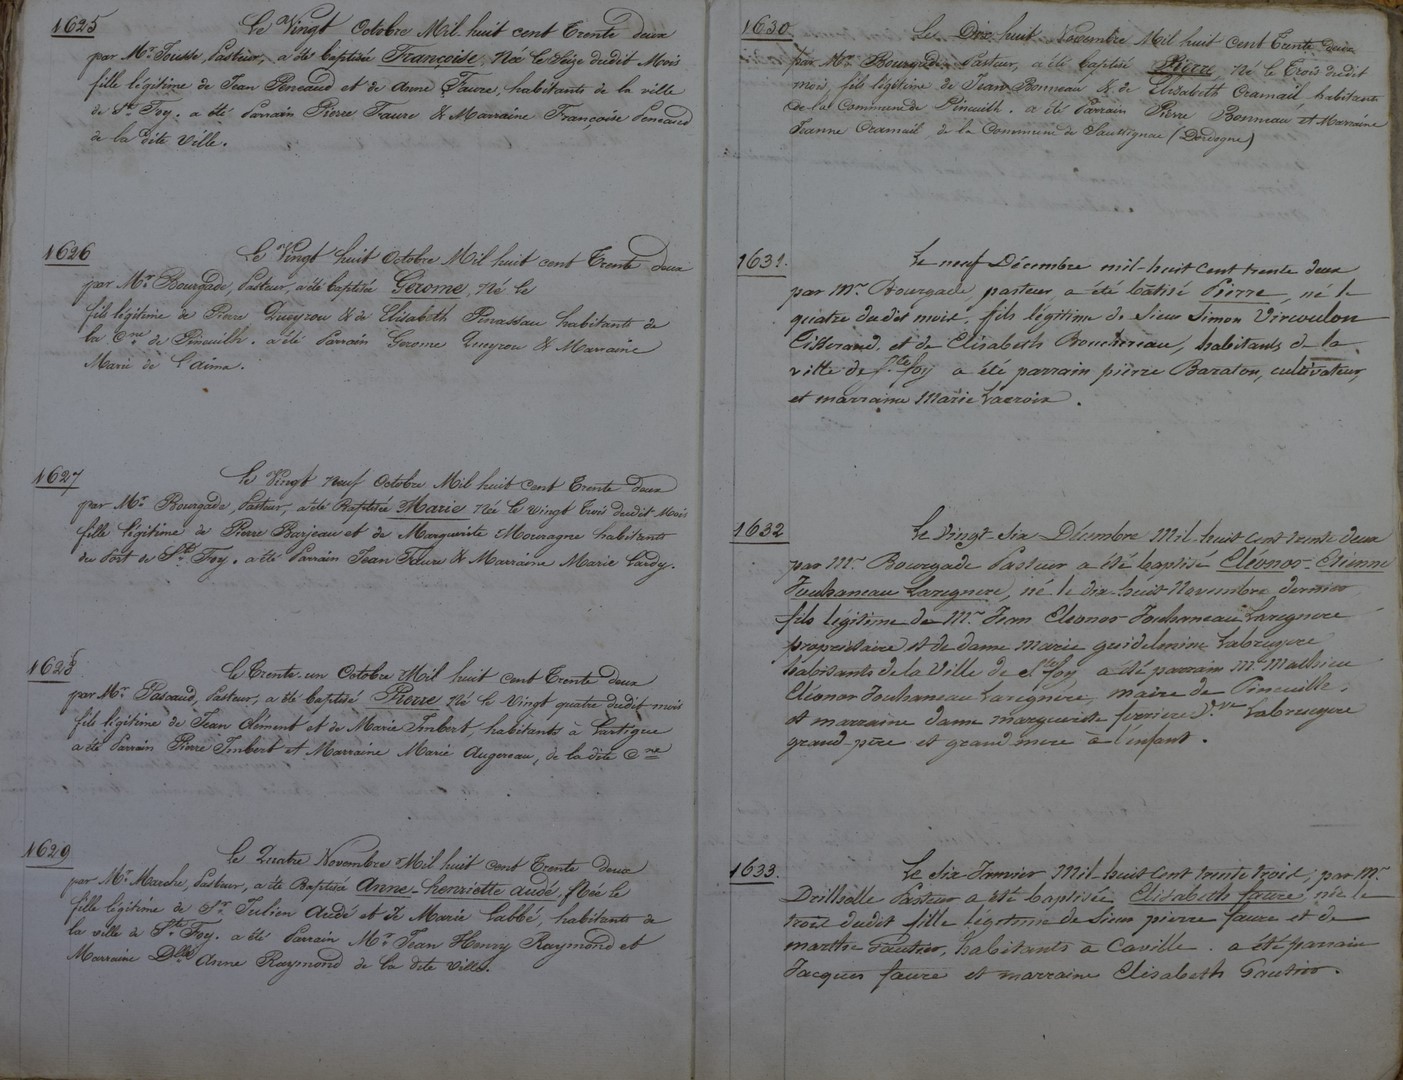 1625
Le Vingt Octobre Mil huit cent Trente deux
par Mr Jousse, Pasteur, a été Baptisée Françoise, Né le Seize dudit Mois
fille légitime de Jean Peneaud et de Anne Faure, habitants de la ville
de Ste Foy. a été Parrain Pierre Faure & Marraine Françoise Peneaud
de la dite Ville.
1626
Le Vingt huit Octobre Mil huit cent Trente deux
par Mr Bourgade, Pasteur, a été baptisée Gérome, Né le
fils légitime de Pierre Queyrou & de Elisabeth Pinassau habitants de
la Cne de Pineuilh. a été Parrain Gerome Queyrou & Marraine
Marie de Laima.
1627
Le Vingt Neuf Octobre Mil huit cent Trente deux
par Mr Bourgade, Pasteur, a été Baptisée Marie Née le vingt Trois dudit Mois
fille légitime de Pierre Barjeau et de Marguerite Mouragne habitants
du Port de Ste Foy. a été Parrain Jean Faure & Marraine Marie Lardy.
1628
Le Trente-un Octobre Mil huit Cent Trente deux
par Mr Pascaud, Pasteur, a été baptisé Pierre Né le Vingt quatre dudit mois
fils légitime de Jean Clément et de Marie Imbert, habitants à Lartigue
a été Parrain Pierre Imbert et Marraine Marie Augereau, de la dite Cne
1629
Le Quatre Novembre Mil huit cent Trente deux
par Mr Marche, Pasteur, a été Baptisée Anne-henriette audé, Née le
fille légitime de Sr Julien Audé et de Marie Labbé, habitants de
la ville de Ste Foy. a été Parrain Mr Jean Henry Raymond et
Marraine Dlle Anne Raymond de la dite Ville.
1630
Le Dix huit Mil huit Cent Trente deux
par Mr Bourgade, Pasteur, a été baptisé Pierre, Né le Trois dudit
mois, fils légitime de Jean Bonneau & de Elisabeth Cramail habitants
de la Commune de Pineuilh. a été Parrain Pierre Bonneau et Marraine
Jeanne Cramail de la Commune de Saussignac (Dordogne)
1631.
Le neuf Décembre mil-huit cent trente deux
par Mr Bourgade, pasteur, a été bâtisé Pierre, né le
quatre du dit mois, fils légitime de Sieur Simon Vircoulon
Tisserand, et de Elisabeth Bouchereau, habitants de la
ville de Ste foy a été parrain pierre Baraton, cultivateur,
et marraine Marie Lacroix.
1632
Le Vingt-six Décembre Mil-huit Cent trente deux
par Mr Bourgade Pasteur a été baptisé Eléonor-Etienne
Jouhaneau Laregnere, né le dix-huit Novembre dernier
fils légitime de Mr Jean Eléonor Jouhaneau Laregnere
propriétaire et de dame Marie Labruyere
habitants de la Ville de Ste foy a été parrain Mr Mathieu
Eléonor Jouhaneau Laregnère, maire de Pineuilh,
et marraine dame marguerite ferriere Vve Labruyere
grand-père et grand mere à l'enfant.
1633.
Le Six Janvier Mil-huit Cent trente trois, par Mr
Drilholle Pasteur a été baptisée Elisabeth faure, née le
trois dudit fille légitime de Sieur pierre faure et de
marthe Gautier, habitants à Caville. a été parrain
Jacques faure et marraine Elisabeth Gautier.